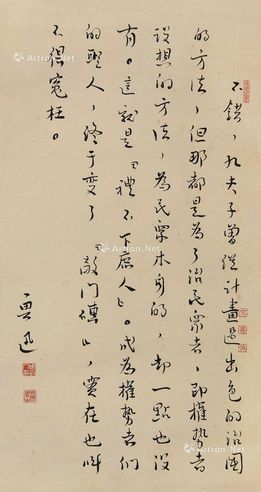 不錯，孔夫子曾經計畫過出色的治國
的方法，但那都是為了治民眾者，即權勢者
設想的方法，為民眾本身的，却一點也沒
有。這就是『禮不下庶人』。成為權勢者們
的聖人，終于變了『敲門磚』，實在也叫
不得冤枉。
魯迅
Artron.Net